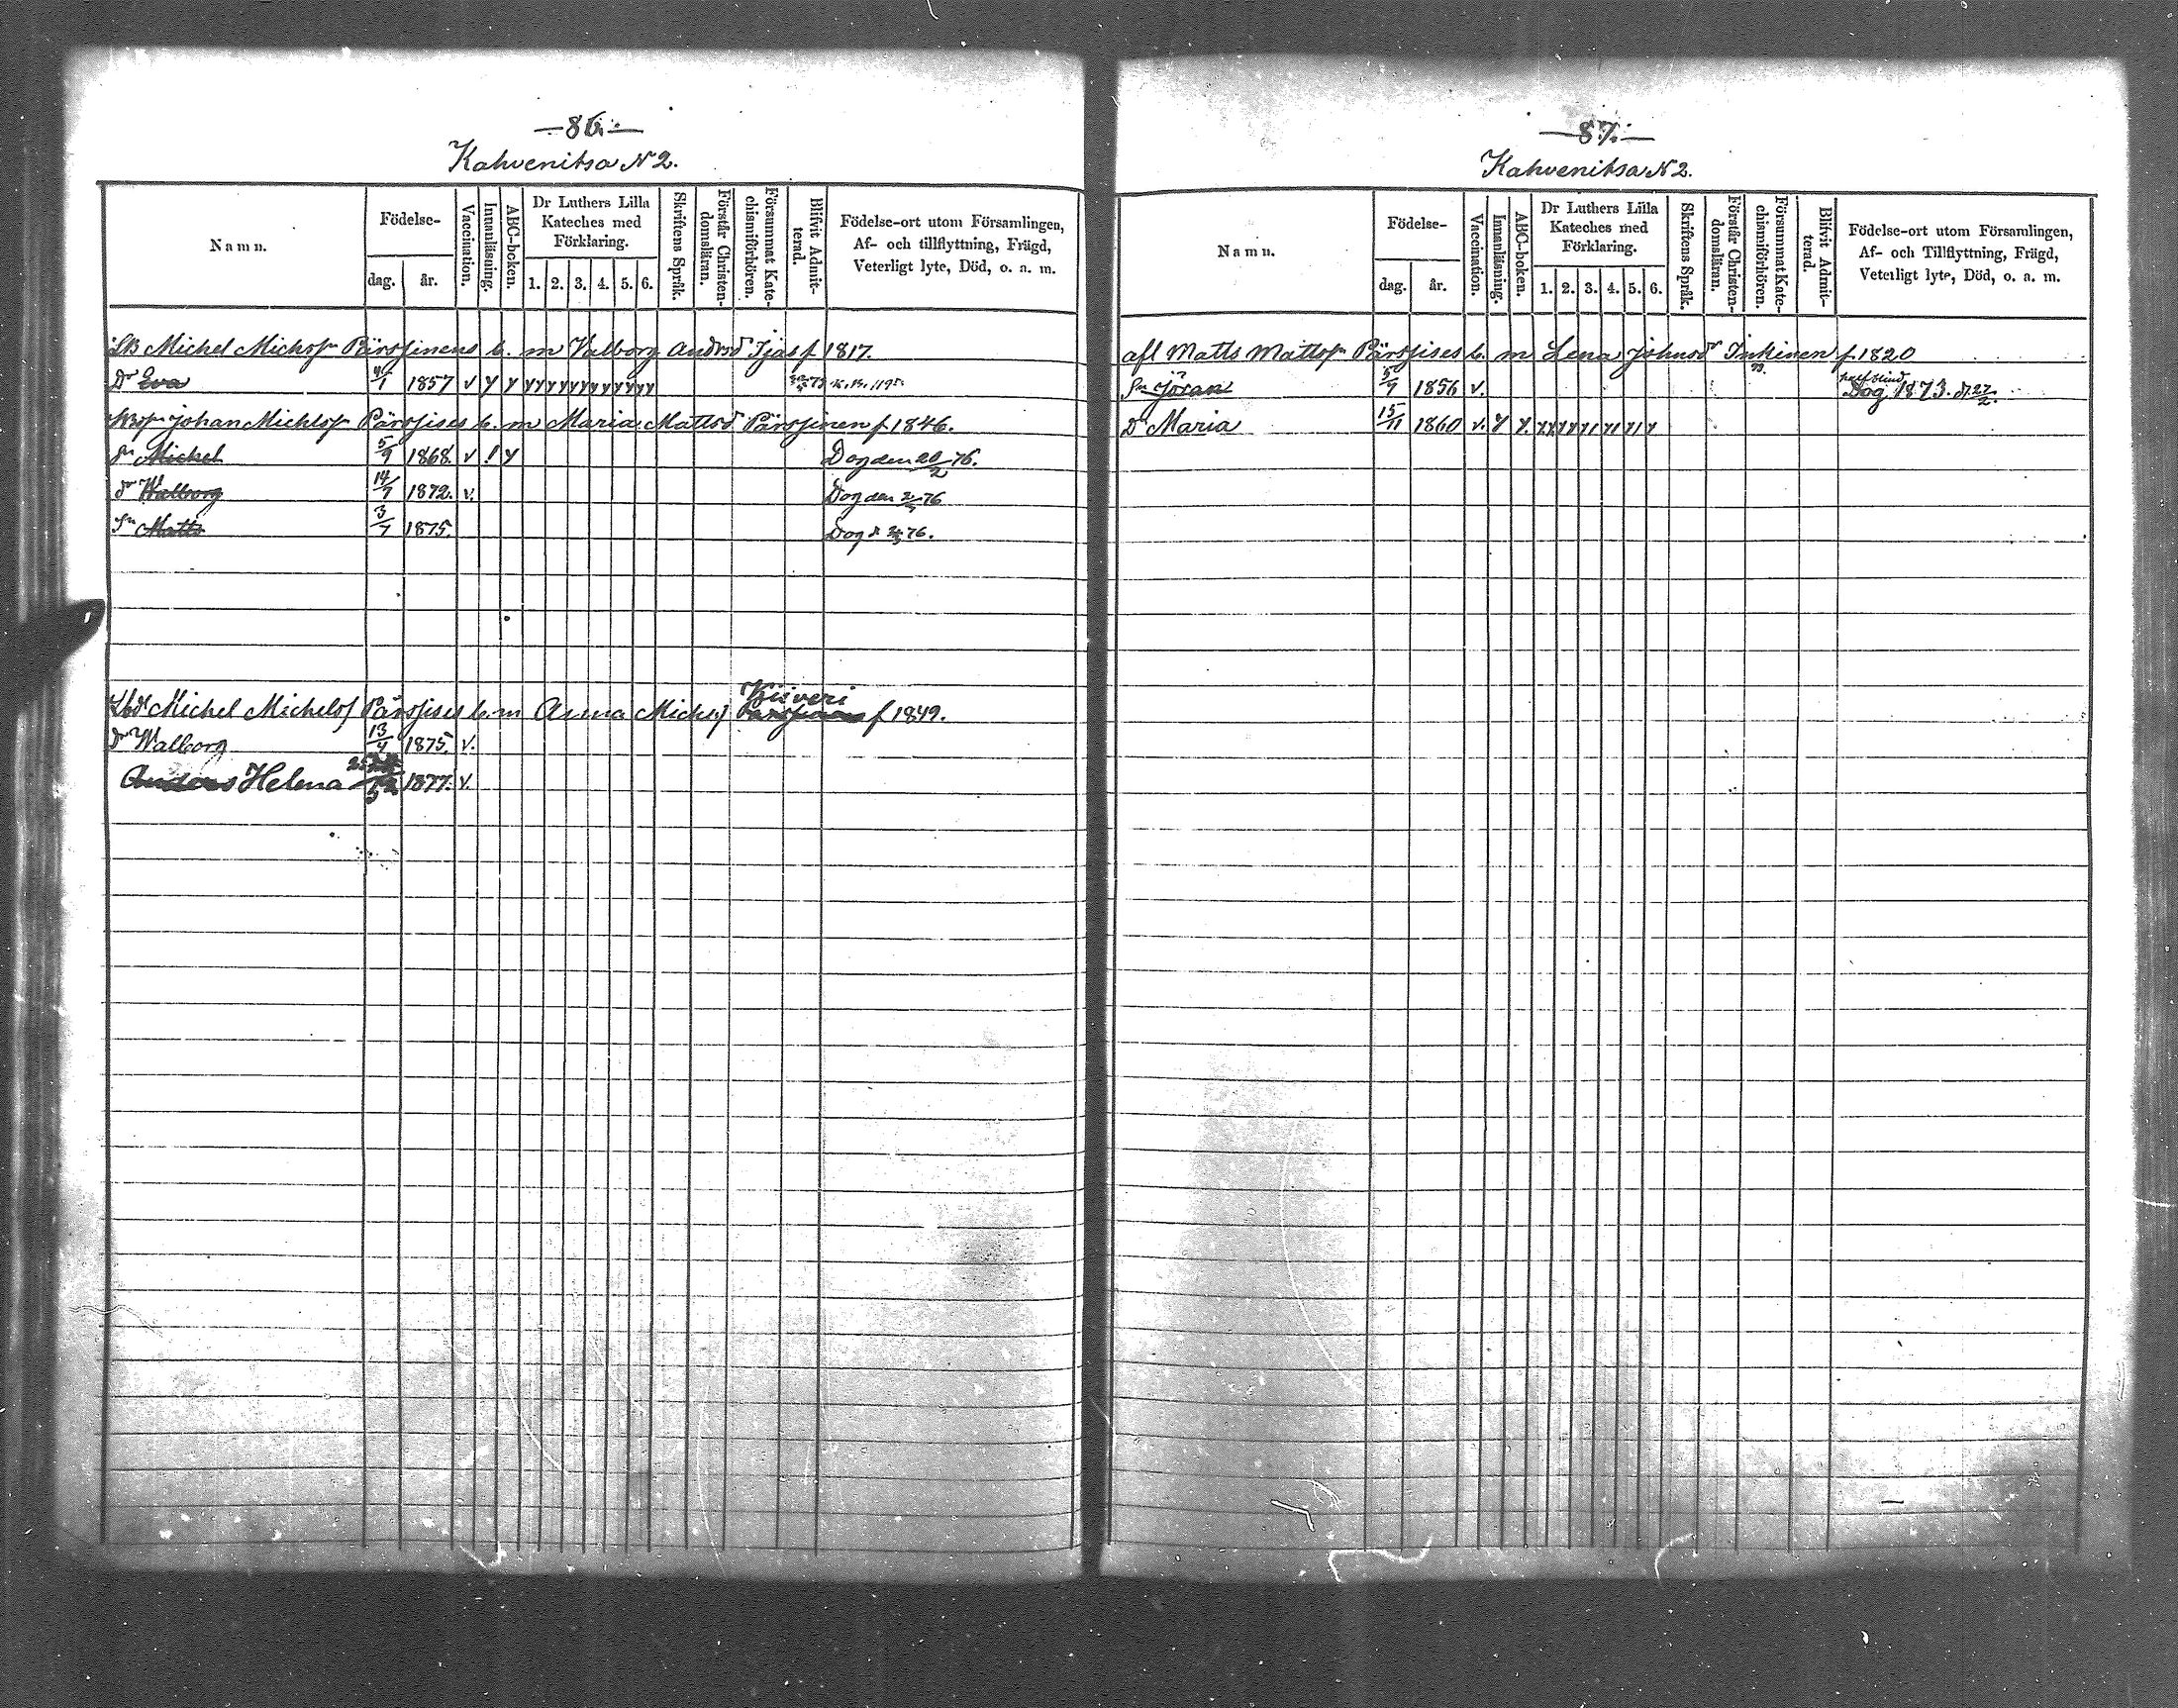 —86.—
Kahvenitsa N 2.
Namn.
Födelse-
dag.
år.
Vaccination.
Innanläsning.
ABC-boken.
Dr Luthers Lilla Kateches med Förklaring.
1. 2. 3. 4. 5. 6.
Skriftens Språk.
Förstår Christen-domsläran.
Försummat Kate-chismiförhören.
Blifvit Admit-terad.
Födelse-ort utom Församlingen, Af- och tillflyttning, Frägd, Veterligt lyte, Död, o. a. m.
Michel Michsn Pärssinens b. m Valborg Andrsd f 1817.
Dr Eva 1857 v
Johan Michlsn Pärssises b. m Maria Mattsd Pärssinen f 1846.
Sn Michel 5/9 1868. v ! y Dog den 20/2 76.
Dr Walborg 14/7 1872. v. Dog den 76
Sn Matts 3/7 1875. Dog d 76.
Kiiveri
Michel Michels Pärssises b. m Anna Michsd f 1849.
Dr Walborg 13/4 1875. v.
Anders Helena 1877. v.
—87.—
Kahvenitsa N 2.
Namn.
Födelse-
dag.
år.
Vaccination.
Innanläsning.
ABC-boken.
Dr Luthers Lilla Kateches med Förklaring.
1. 2. 3. 4. 5. 6.
Skriftens Språk.
Förstår Christen-domsläran.
Försummat Kate-chismiförhören.
Blifvit Admit-terad.
Födelse-ort utom Församlingen, Af- och Tillflyttning, Frägd, Veterligt lyte, Död, o. a. m.
afl Matts Mattssn Pärssises b. m Lena Johnsdr Inkinen f 1820
Sn Jöran 5/9 1856 v. Dog 1873. d. 27/2.
Dr Maria 15/11 1860 v. y y.